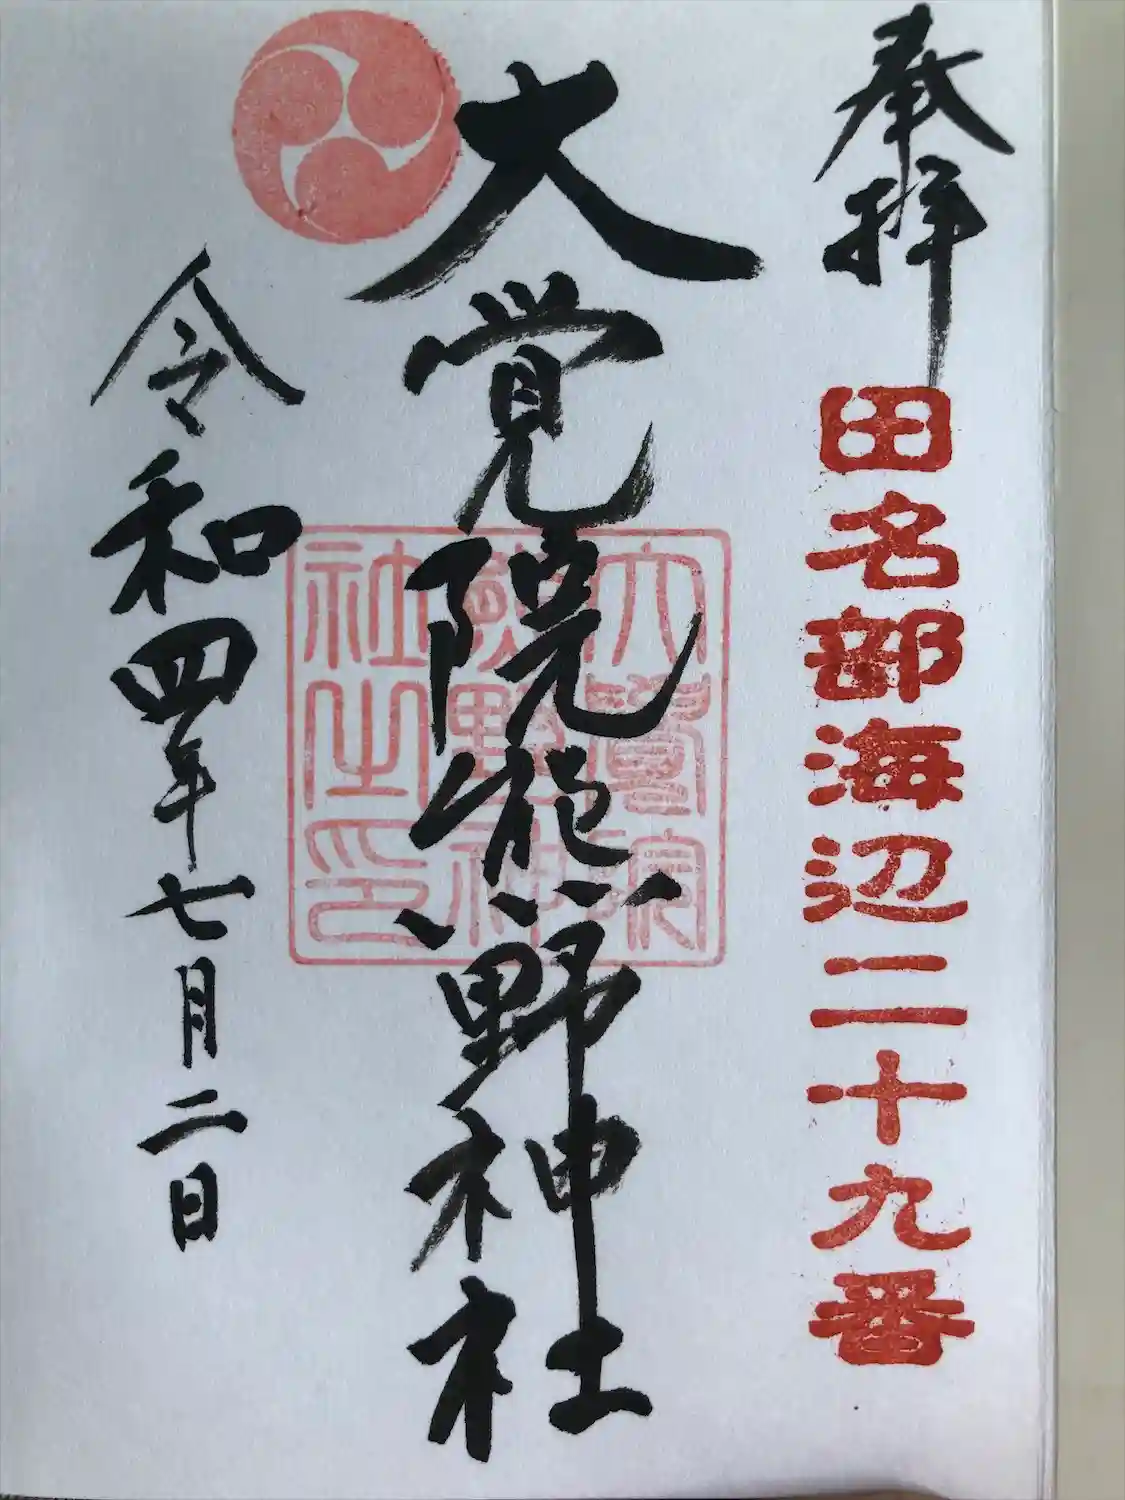 奉拝
田名部海辺二十九番
大覚院熊野神社
大覺院
熊野神
社之印
令和四年七月二日